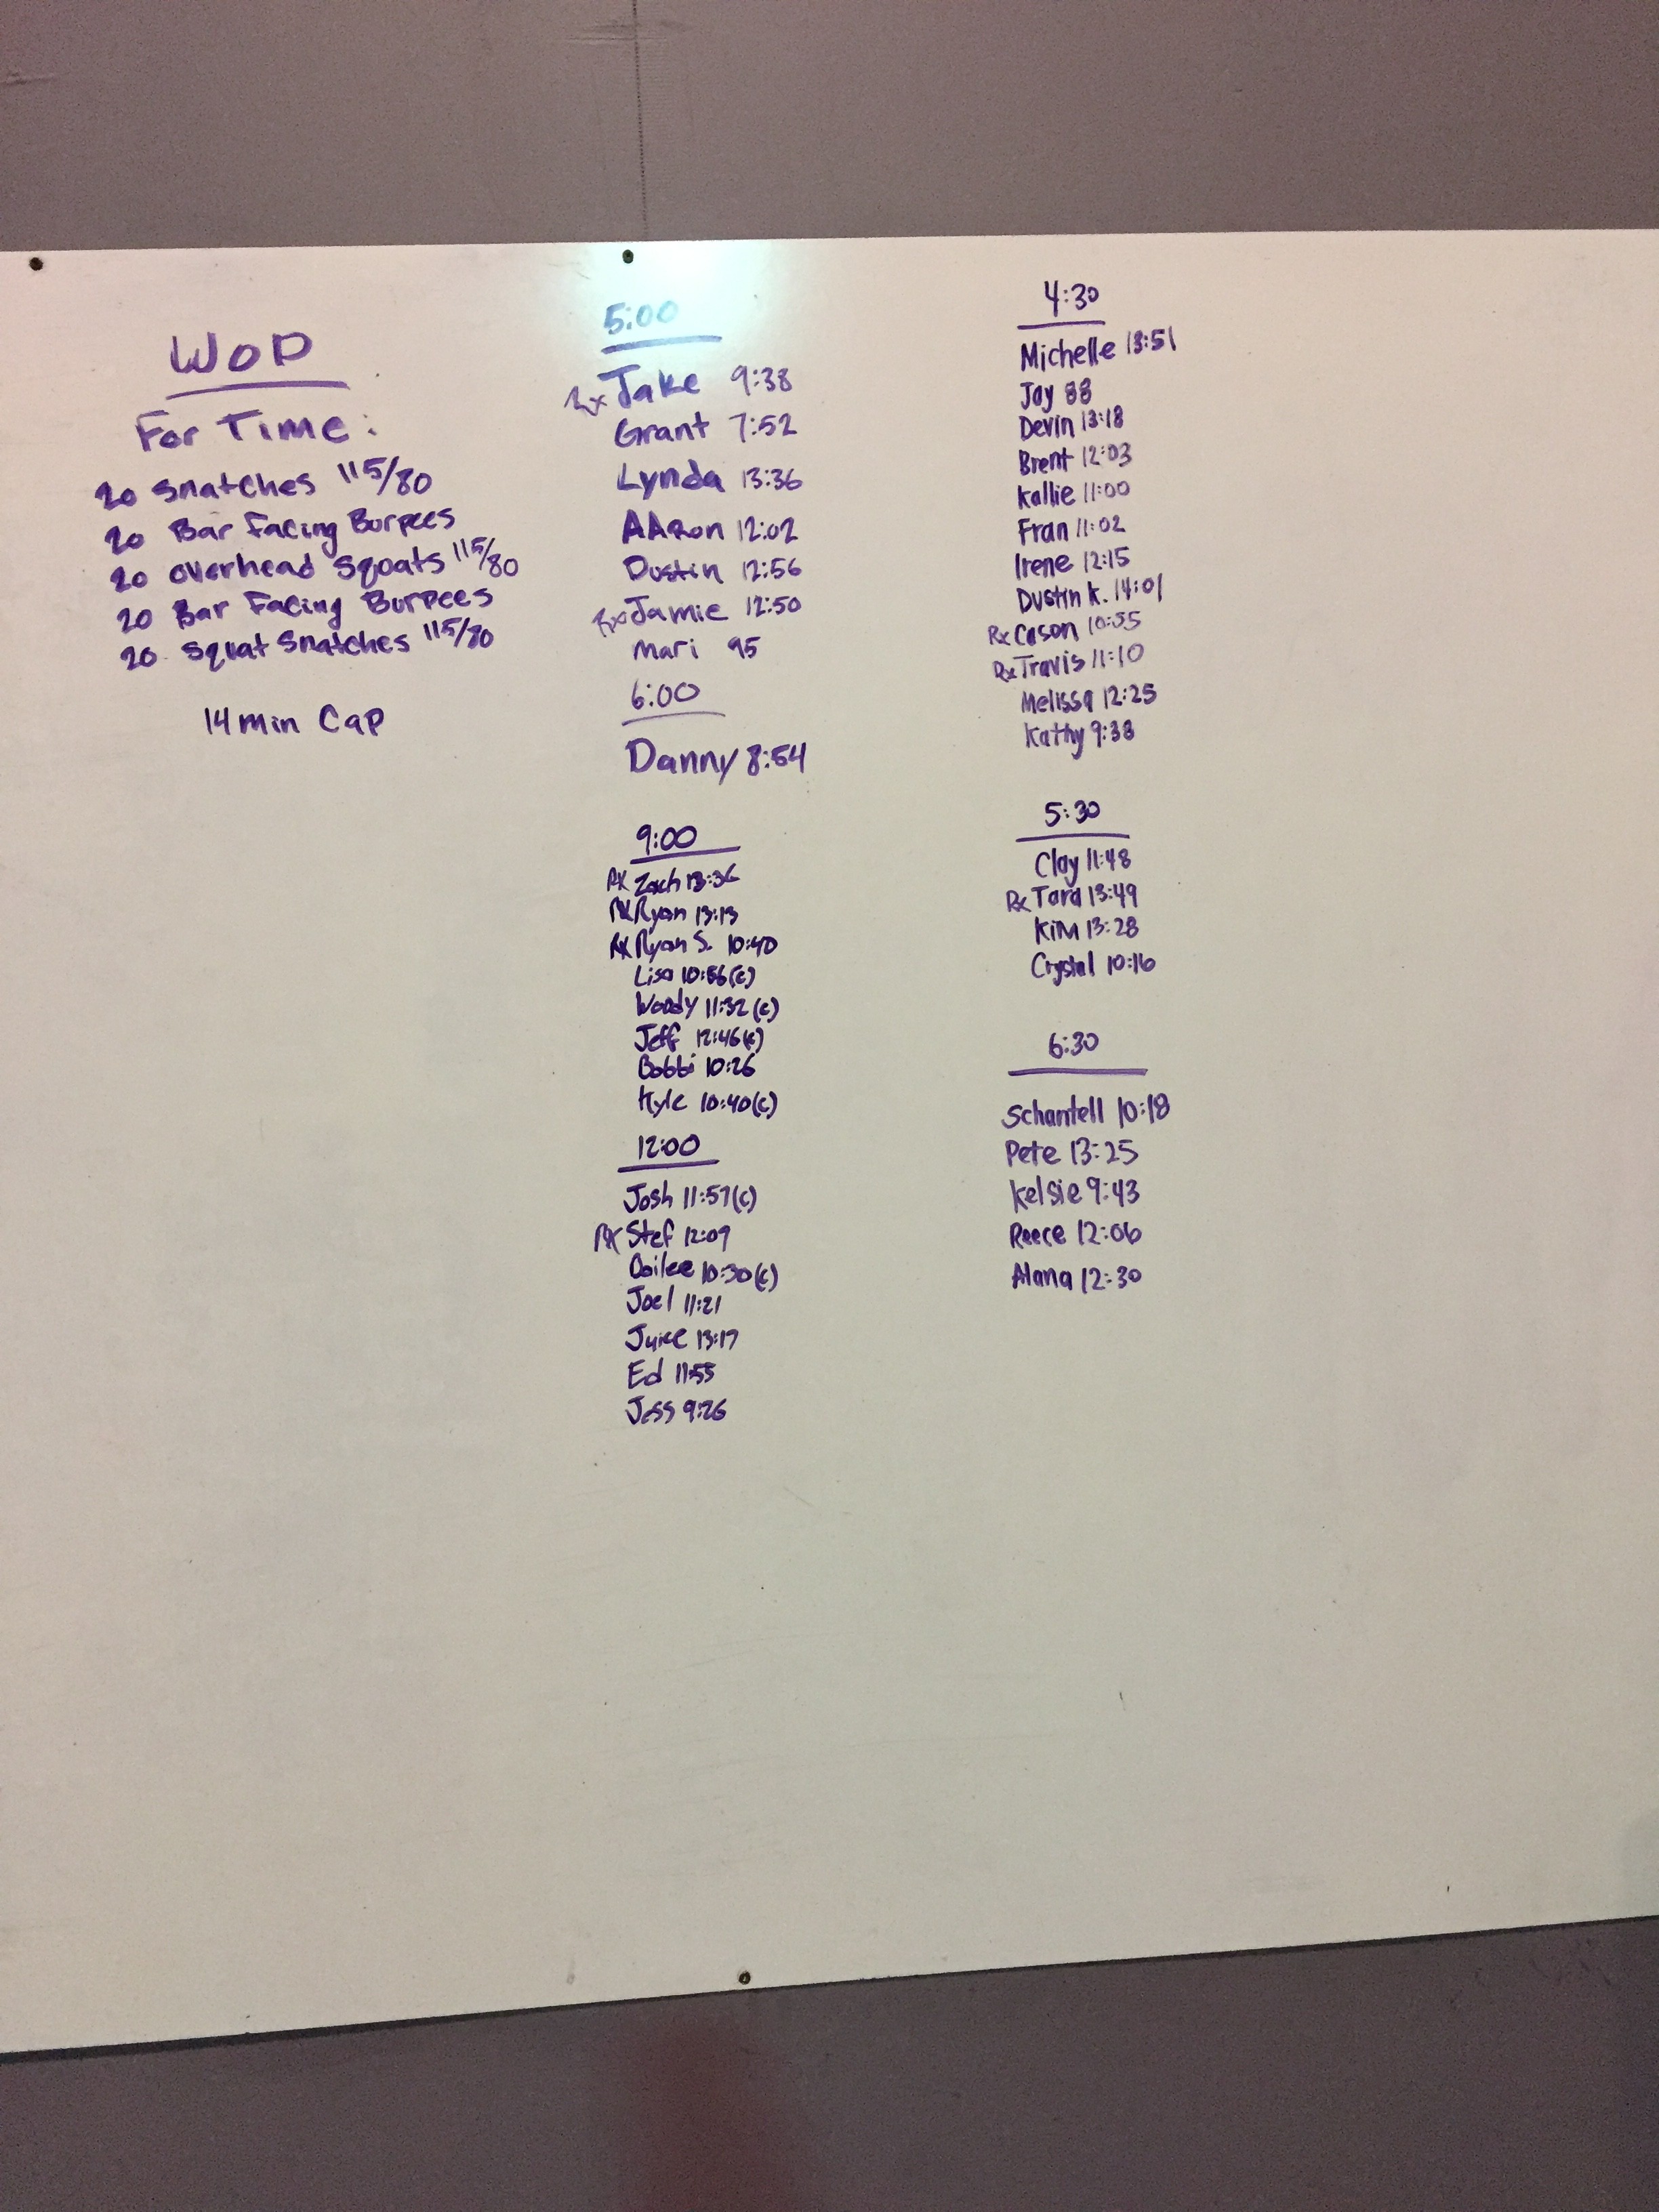 WOD
For Time:
20 Snatches 115/80
20 Bar Facing Burpees
20 overhead Squats 115/80
20 Bar Facing Burpees
20 Squat Snatches 115/80
14 min Cap
5:00
Rx Jake 9:38
Grant 7:52
Lynda 13:36
AAron 12:02
Dustin 12:56
Rx Jamie 12:50
Mari 95
6:00
Danny 8:54
9:00
RX Zach 13:36
RX Ryan 13:13
RX Ryan S. 10:40
Lisa 10:56(c)
Woody 11:32(c)
Jeff 12:46(c)
Bobbi 10:26
Kyle 10:40(c)
12:00
Josh 11:57(c)
RX Stef 12:09
10:30(c)
Joel 11:21
Juice 13:17
Ed 11:55
Jess 9:26
4:30
Michelle 13:51
Jay 88
Devin 13:18
Brent 12:03
Kallie 11:00
Fran 11:02
Irene 12:15
Dustin K. 14:01
Rx Cason 10:55
Rx Travis 11:10
Melissa 12:25
Kathy 9:38
5:30
Clay 11:48
Rx Tara 13:49
Kim 13:28
Crystal 10:16
6:30
Schantell 10:18
Pete 13:25
Kelsie 9:43
Reece 12:06
Alana 12:30